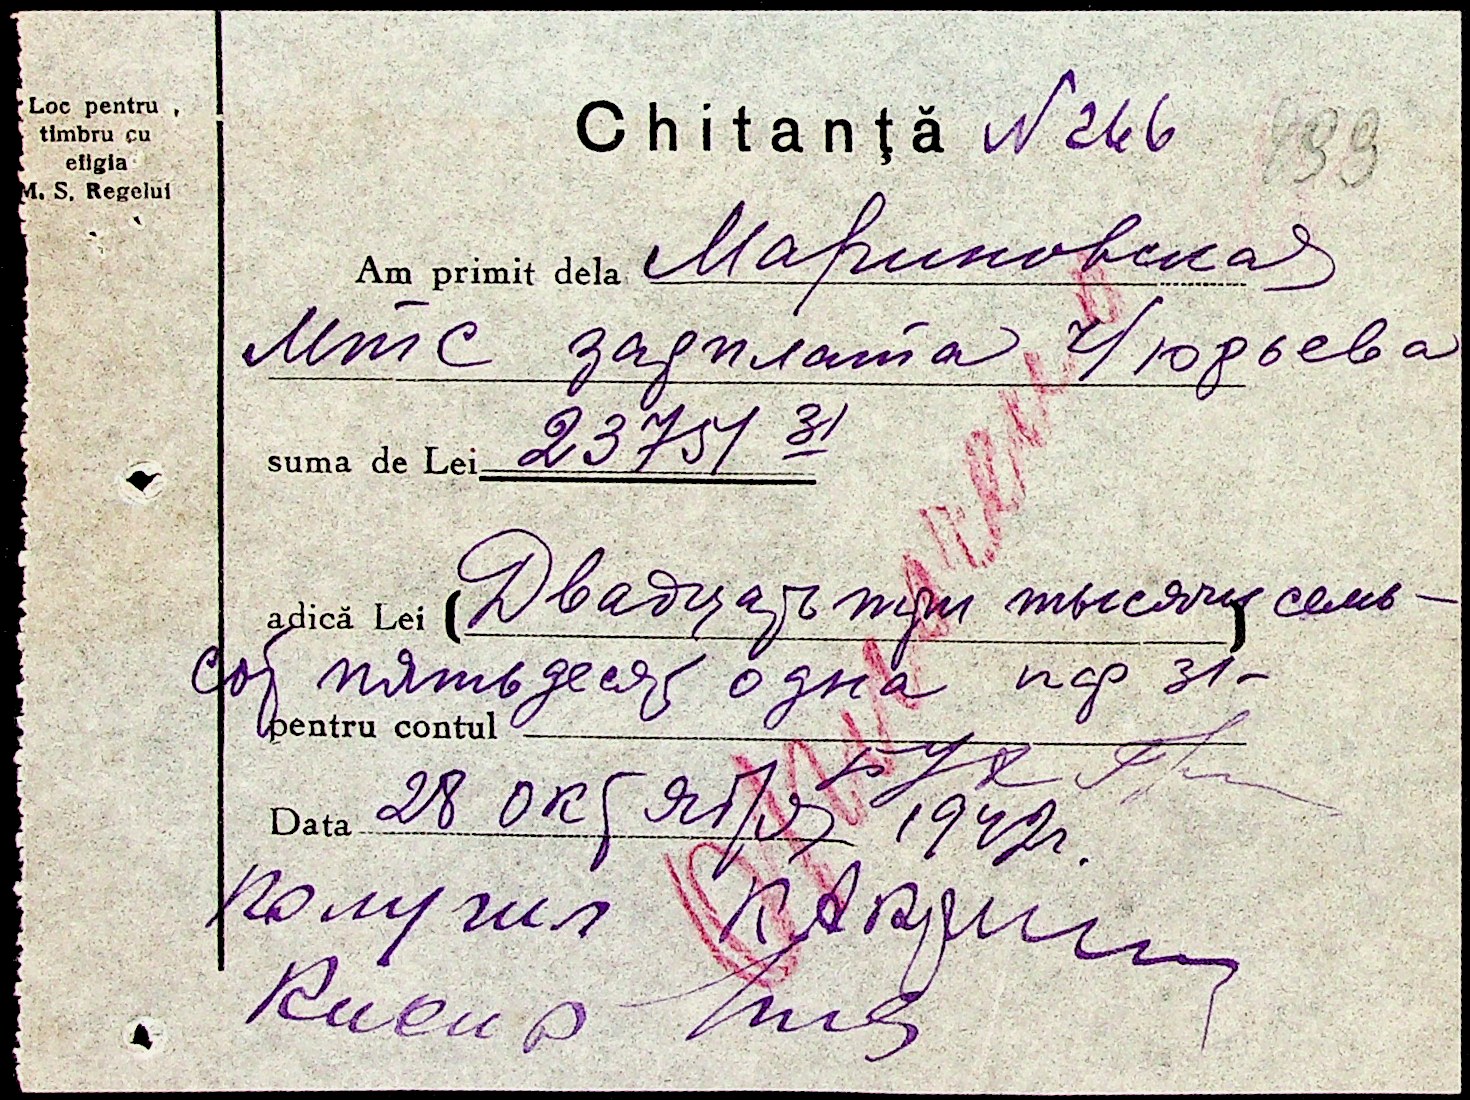 Loc pentru
timbru cu
efigia
M. S. Regelui
Chitanţă N 266
899
Am primit dela Мариновская
МТС зарплата ч/Юрьева
suma de Lei 23751 31
adică Lei (Двадцать три тысячи семь-
сот пятьдесят одна кар 31-
pentru contul
Data 28 октября 1942г.
Получил
Кассир
Оплачено